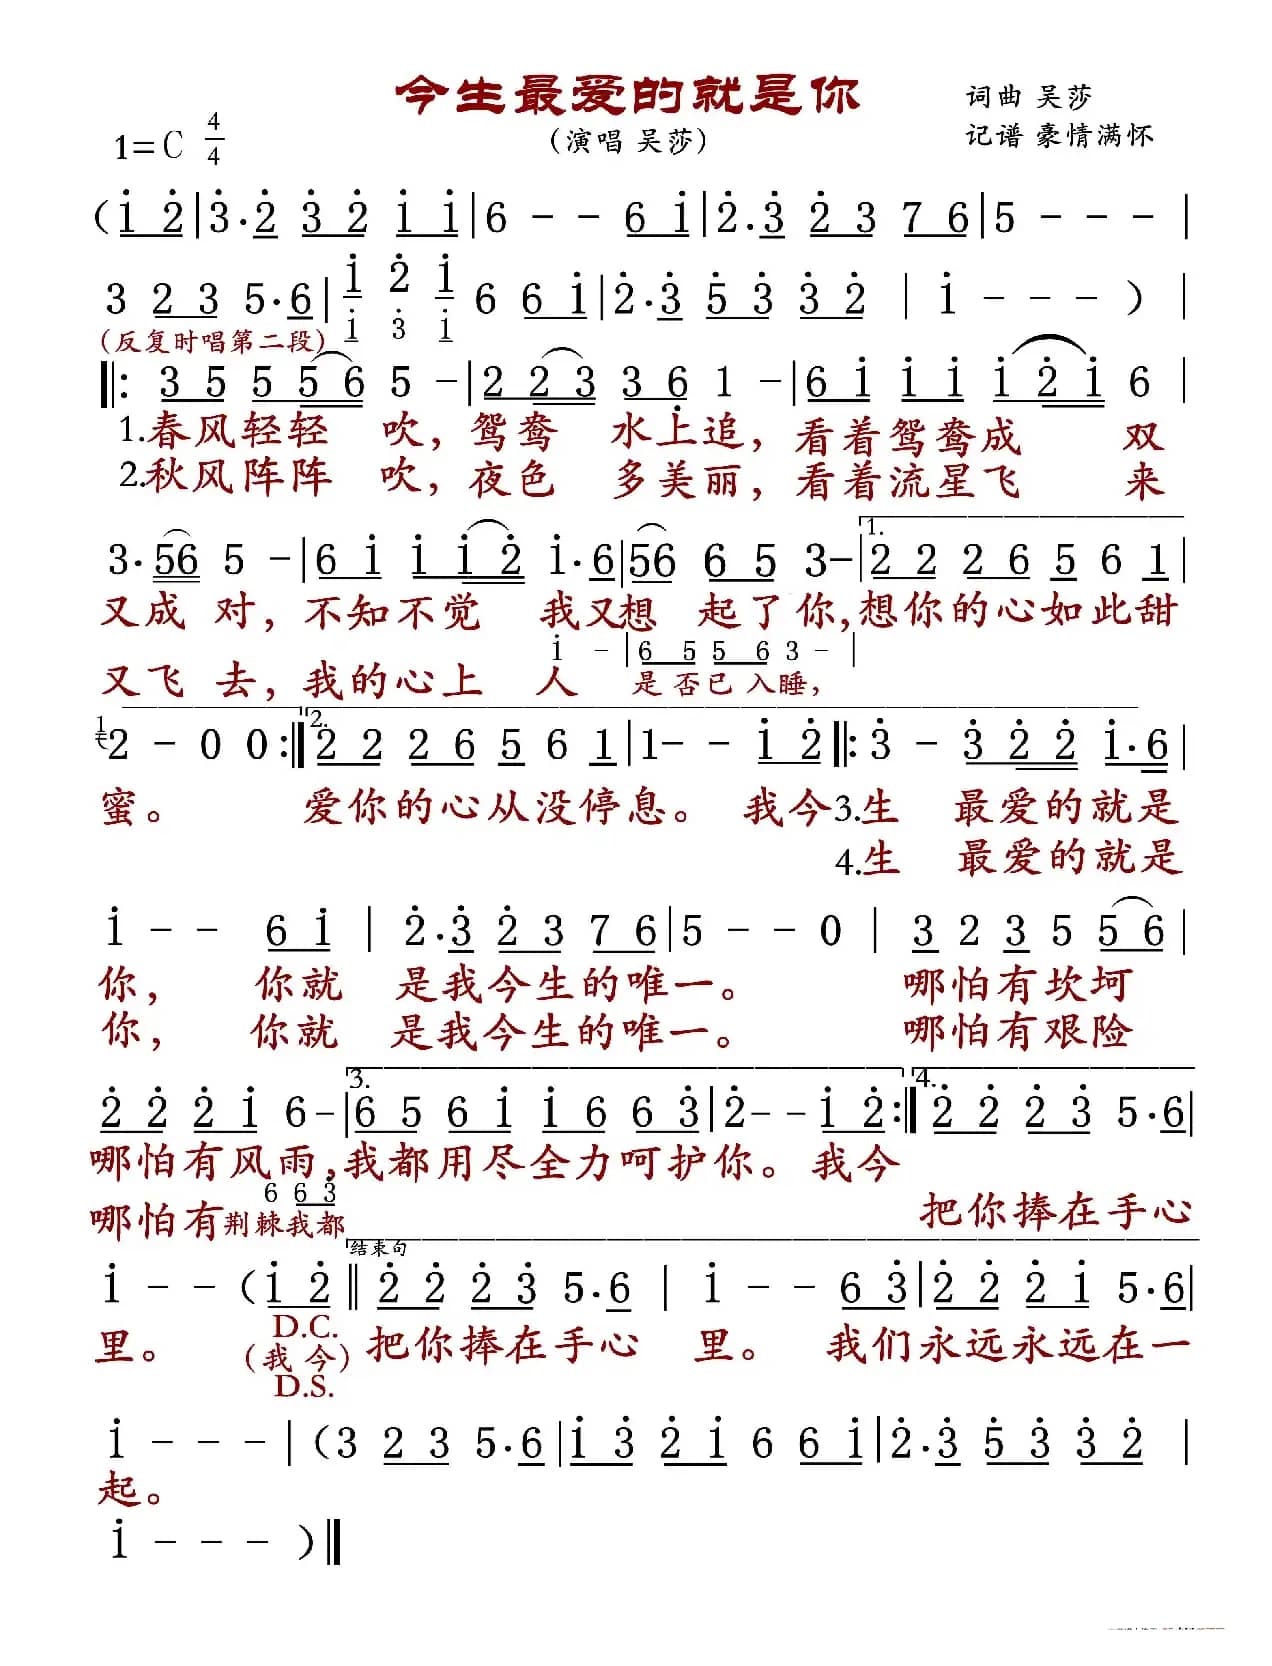 今生最爱的就是你
词曲 吴莎
1=C 4/4
(演唱 吴莎)
记谱 豪情满怀
(1 2|3·2 3 2 1 1|6 - - 6 1|2·3 2 3 7 6|5 - - -|
3 2 3 5·6|1 2 1 6 6 1|2·3 5 3 3 2|1 - - -)|
1 3 1
(反复时唱第二段)
‖: 3 5 5 5 6 5 -|2 2 3 3 6 1 -|6 1 1 1 1 2 1 6|
1.春风轻轻 吹，鸳鸯 水上追，看着鸳鸯成 双
2.秋风阵阵 吹，夜色 多美丽，看着流星飞 来
1.
3·56 5 -|6 1 1 1 2 1·6|56 6 5 3-|2 2 2 6 5 6 1|
又成 对，不知不觉 我又想 起了你,想你的心如此甜
1 -|6 5 5 6 3 -|
又飞 去，我的心上 人 是否已入睡，
2.
1 2 - 0 0:‖2 2 2 6 5 6 1|1- - 1 2‖:3 - 3 2 2 1·6|
蜜。 爱你的心从没停息。 我今3.生 最爱的就是
4.生 最爱的就是
1 - - 6 1|2·3 2 3 7 6|5 - - 0|3 2 3 5 5 6|
你， 你就 是我今生的唯一。 哪怕有坎坷
你， 你就 是我今生的唯一。 哪怕有艰险
3. 4.
2 2 2 1 6-|6 5 6 1 1 6 6 3|2- - 1 2:‖2 2 2 3 5·6|
哪怕有风雨,我都用尽全力呵护你。我今
6 6 3
哪怕有荆棘我都 把你捧在手心
结束句
1 - - (1 2‖2 2 2 3 5·6|1 - - 6 3|2 2 2 1 5·6|
D.C.
里。 (我今) 把你捧在手心 里。 我们永远永远在一
D.S.
1 - - -|(3 2 3 5·6|1 3 2 1 6 6 1|2·3 5 3 3 2|
起。
1 - - -)‖